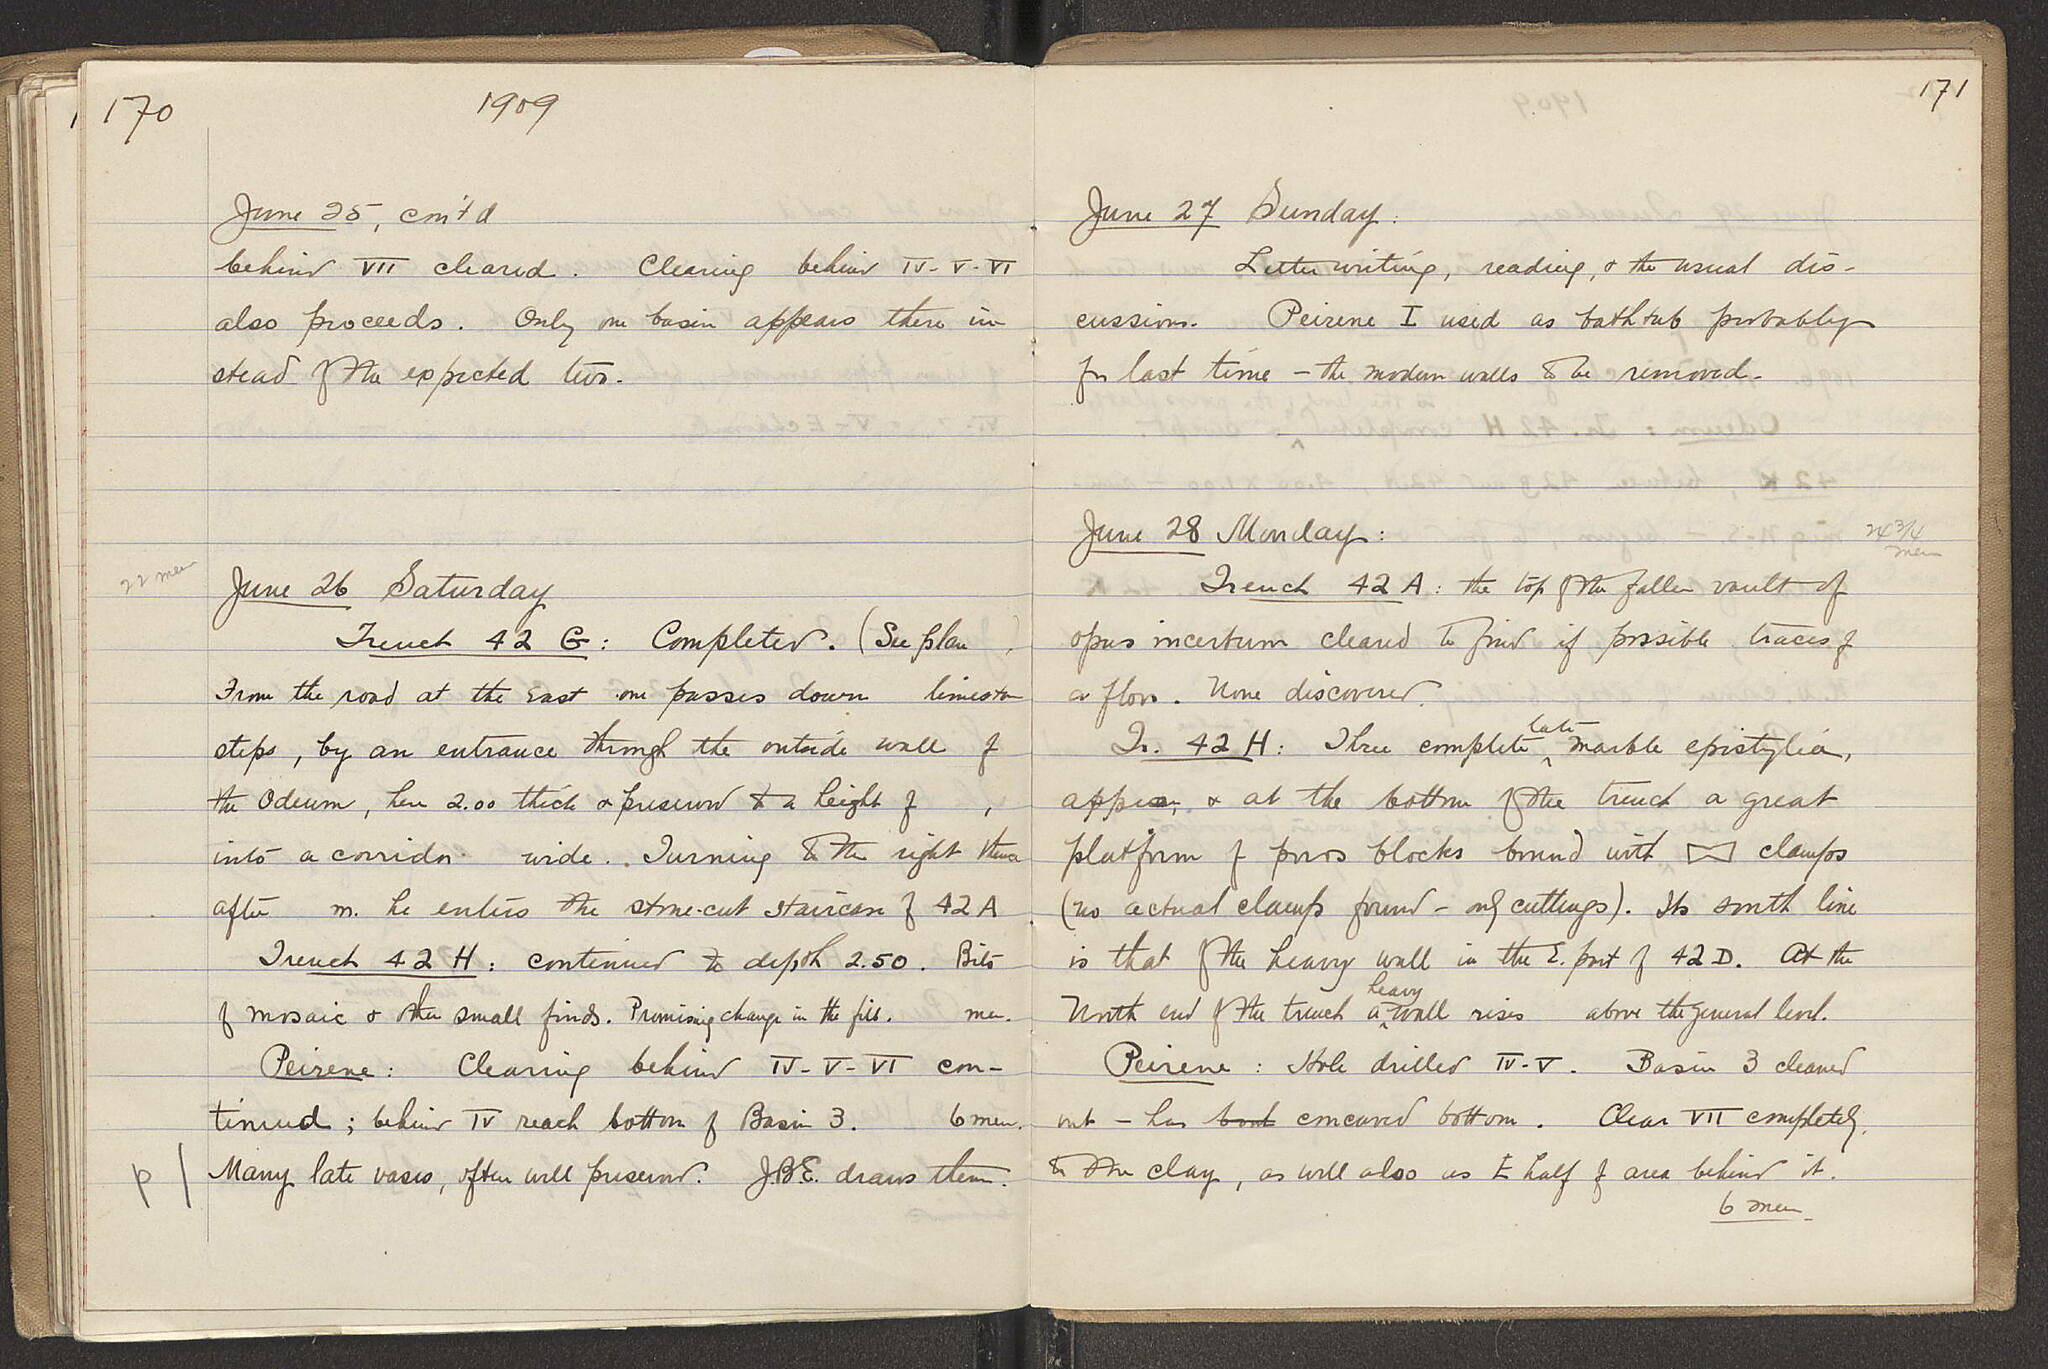 170
1909
June 25, con't'd
behind VII cleared. Clearing behind IV-V-VI
also proceeds. Only one basin appears there in-
stead of the expected two.
22 men
June 26 Saturday
Trench 42 G: Completed. (See plan )
From the road at the East one passes down limestone
steps, by an entrance through the outside wall of
the Odeum, here 2.00 thick & preserved to a height of ,
into a corridor wide. Turning to the right there
after m. he enters the stone-cut staircase of 42 A.
Trench 42 H: continued to depth 2.50. Bits
of mosaic & other small finds. Promising change in the fill. men.
Peirene: Clearing behind IV-V-VI con-
tinued; behind IV reach bottom of Basin 3. 6 men.
P/ Many late vases, often well preserved. J.B.E. draws them.
171
June 27 Sunday:
Letter writing, reading, & the usual dis-
cussions. Peirene I used as bathtub probably
for last time – the modern walls to be removed.
June 28 Monday:
24 3/4 men
Trench 42 A: the top of the fallen vault of
opus incertum cleared to find if possible traces of
a floor. None discovered.
Tr. 42 H: Three complete late marble epistylia,
appear, & at the bottom of the trench a great
platform of poros blocks bound with clamps
(no actual clamps found – only cuttings). Its south line
is that of the heavy wall in the E. part of 42 D. At the
North end of the trench a heavy wall rises above the general level.
Peirene: Hole drilled IV-V. Basin 3 cleaned
out – has concaved bottom. Clear VII completely
to the clay, as well also as E half of area behind it.
6 men